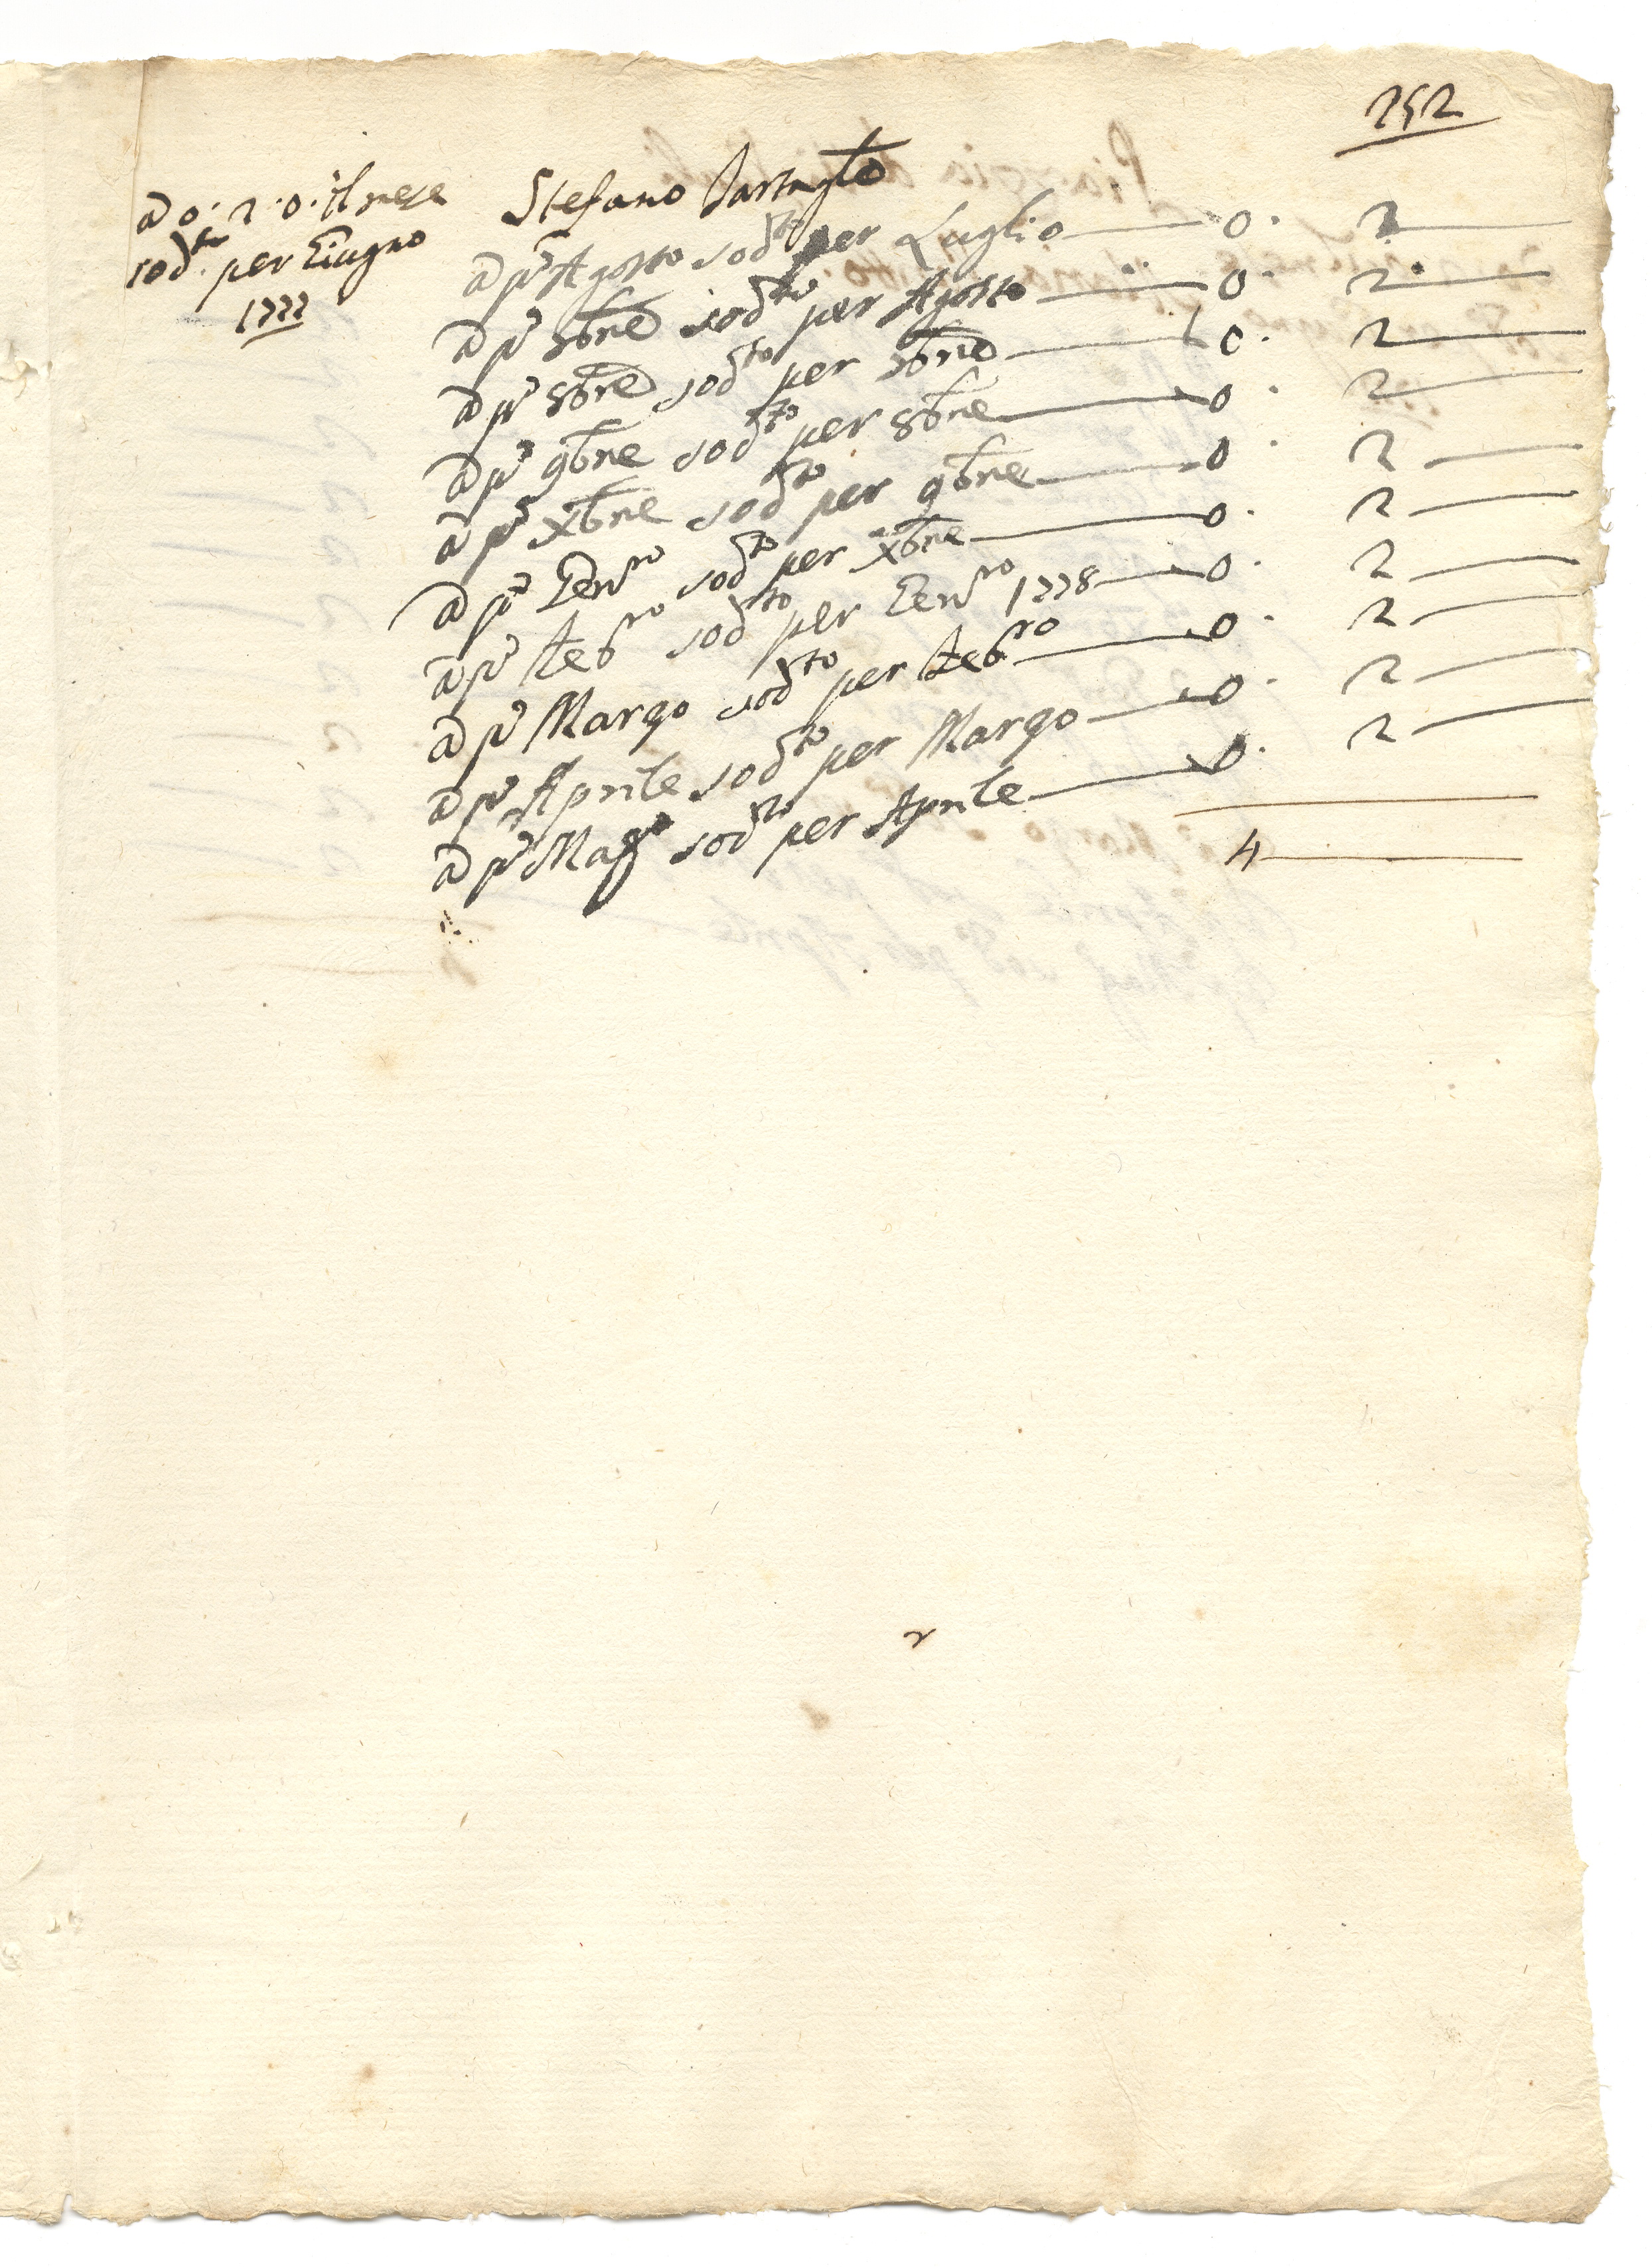 252
a 0. 2. 0. il mese
sod.to per Giugno
1777
Stefano
a p.o Agosto sod.to per Luglio — 0. 2 —
a p.o 7bre sod.to per Agosto — 0. 2 —
a p.o 8bre sod.to per 7bre — 0. 2 —
a p.o 9bre sod.to per 8bre — 0. 2 —
a p.o Xbre sod.to per 9bre — 0. 2 —
a p.o Gen.ro sod.to per Xbre — 0. 2 —
a p.o feb.ro sod.to per Gen.ro 1778 — 0. 2 —
a p.o Marzo sod.to per feb.ro — 0. 2 —
a p.o Aprile sod.to per Marzo — 0. 2 —
a p.o Mag.o sod.to per Aprile — 0. 2 —
4 —